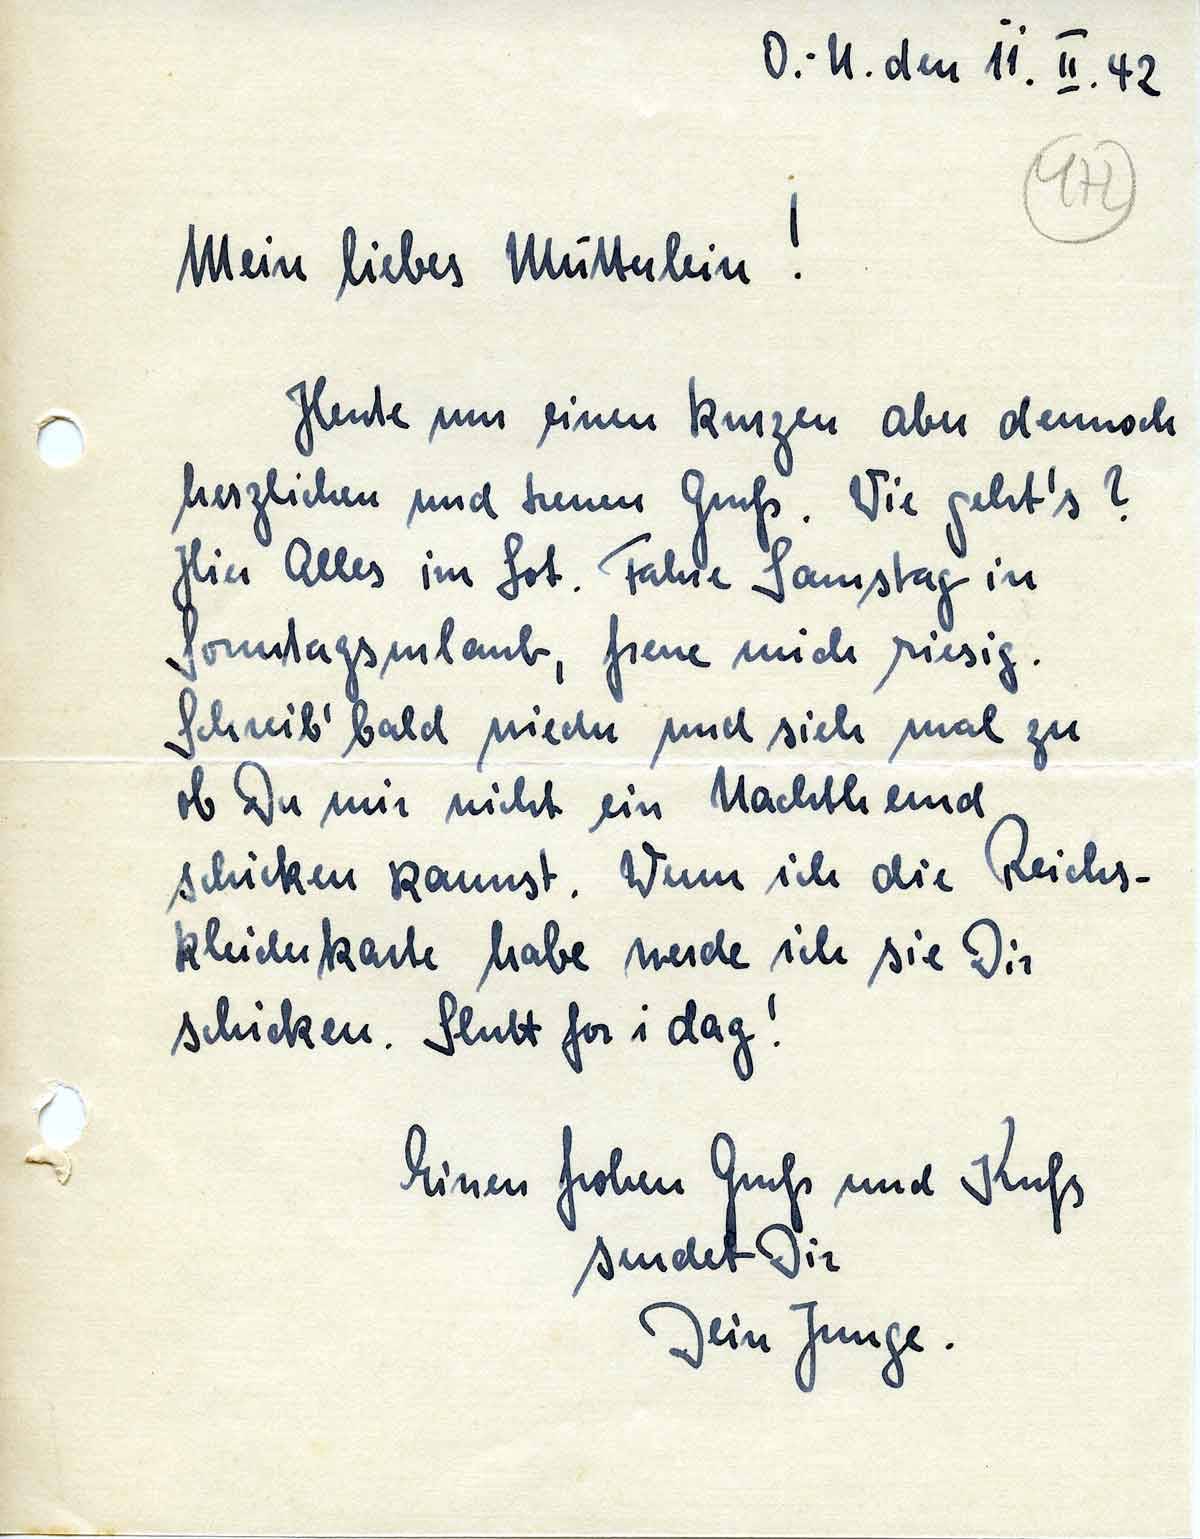 O.-U. den 11. II. 42
472
Mein liebes Mütterlein!
Heute nur einen kurzen aber dennoch
herzlichen und treuen Gruß. Wie geht's?
Hier Alles im Lot. Fahre Samstag in
Sonntagsurlaub, freue mich riesig.
Schreib' bald wieder und sieh mal zu
ob Du mir nicht ein Nachthemd
schicken kannst. Wenn ich die Reichs-
kleiderkarte habe werde ich sie Dir
schicken. Slutt for i dag!
Einen frohen Gruß und Kuß
sendet Dir
Dein Junge.